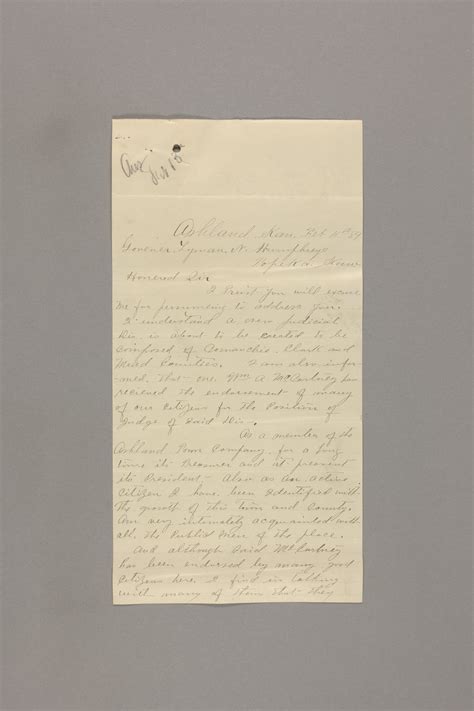 Ans
Feb 15
Ashland Kan. Feb 11th 89
Govener Lyman. N. Humphreys
Topeka Kans
Honered Sir
I Trust You will excuse
me for persumeing to address You.
I understand a new judicial
Dis. is about to be created to be
composed of Comanche, Clark and
Mead Counties. I am also infor-
med. That one. Wm A. McCartney has
recieved the endorsement of many
of our citizens for the Position of
Judge of Said Dis.
As a member of the
Ashland Town Company. for a long
time its Treasurer and at present
its President. Also as an active
Citizen I have been Identified with
the growth of this town and County.
Am very intimately acquainted with
all the Public Men of the place.
And although Said McCartney
has been endorsed by many good
citizens here. I find in talking
with many of them that they